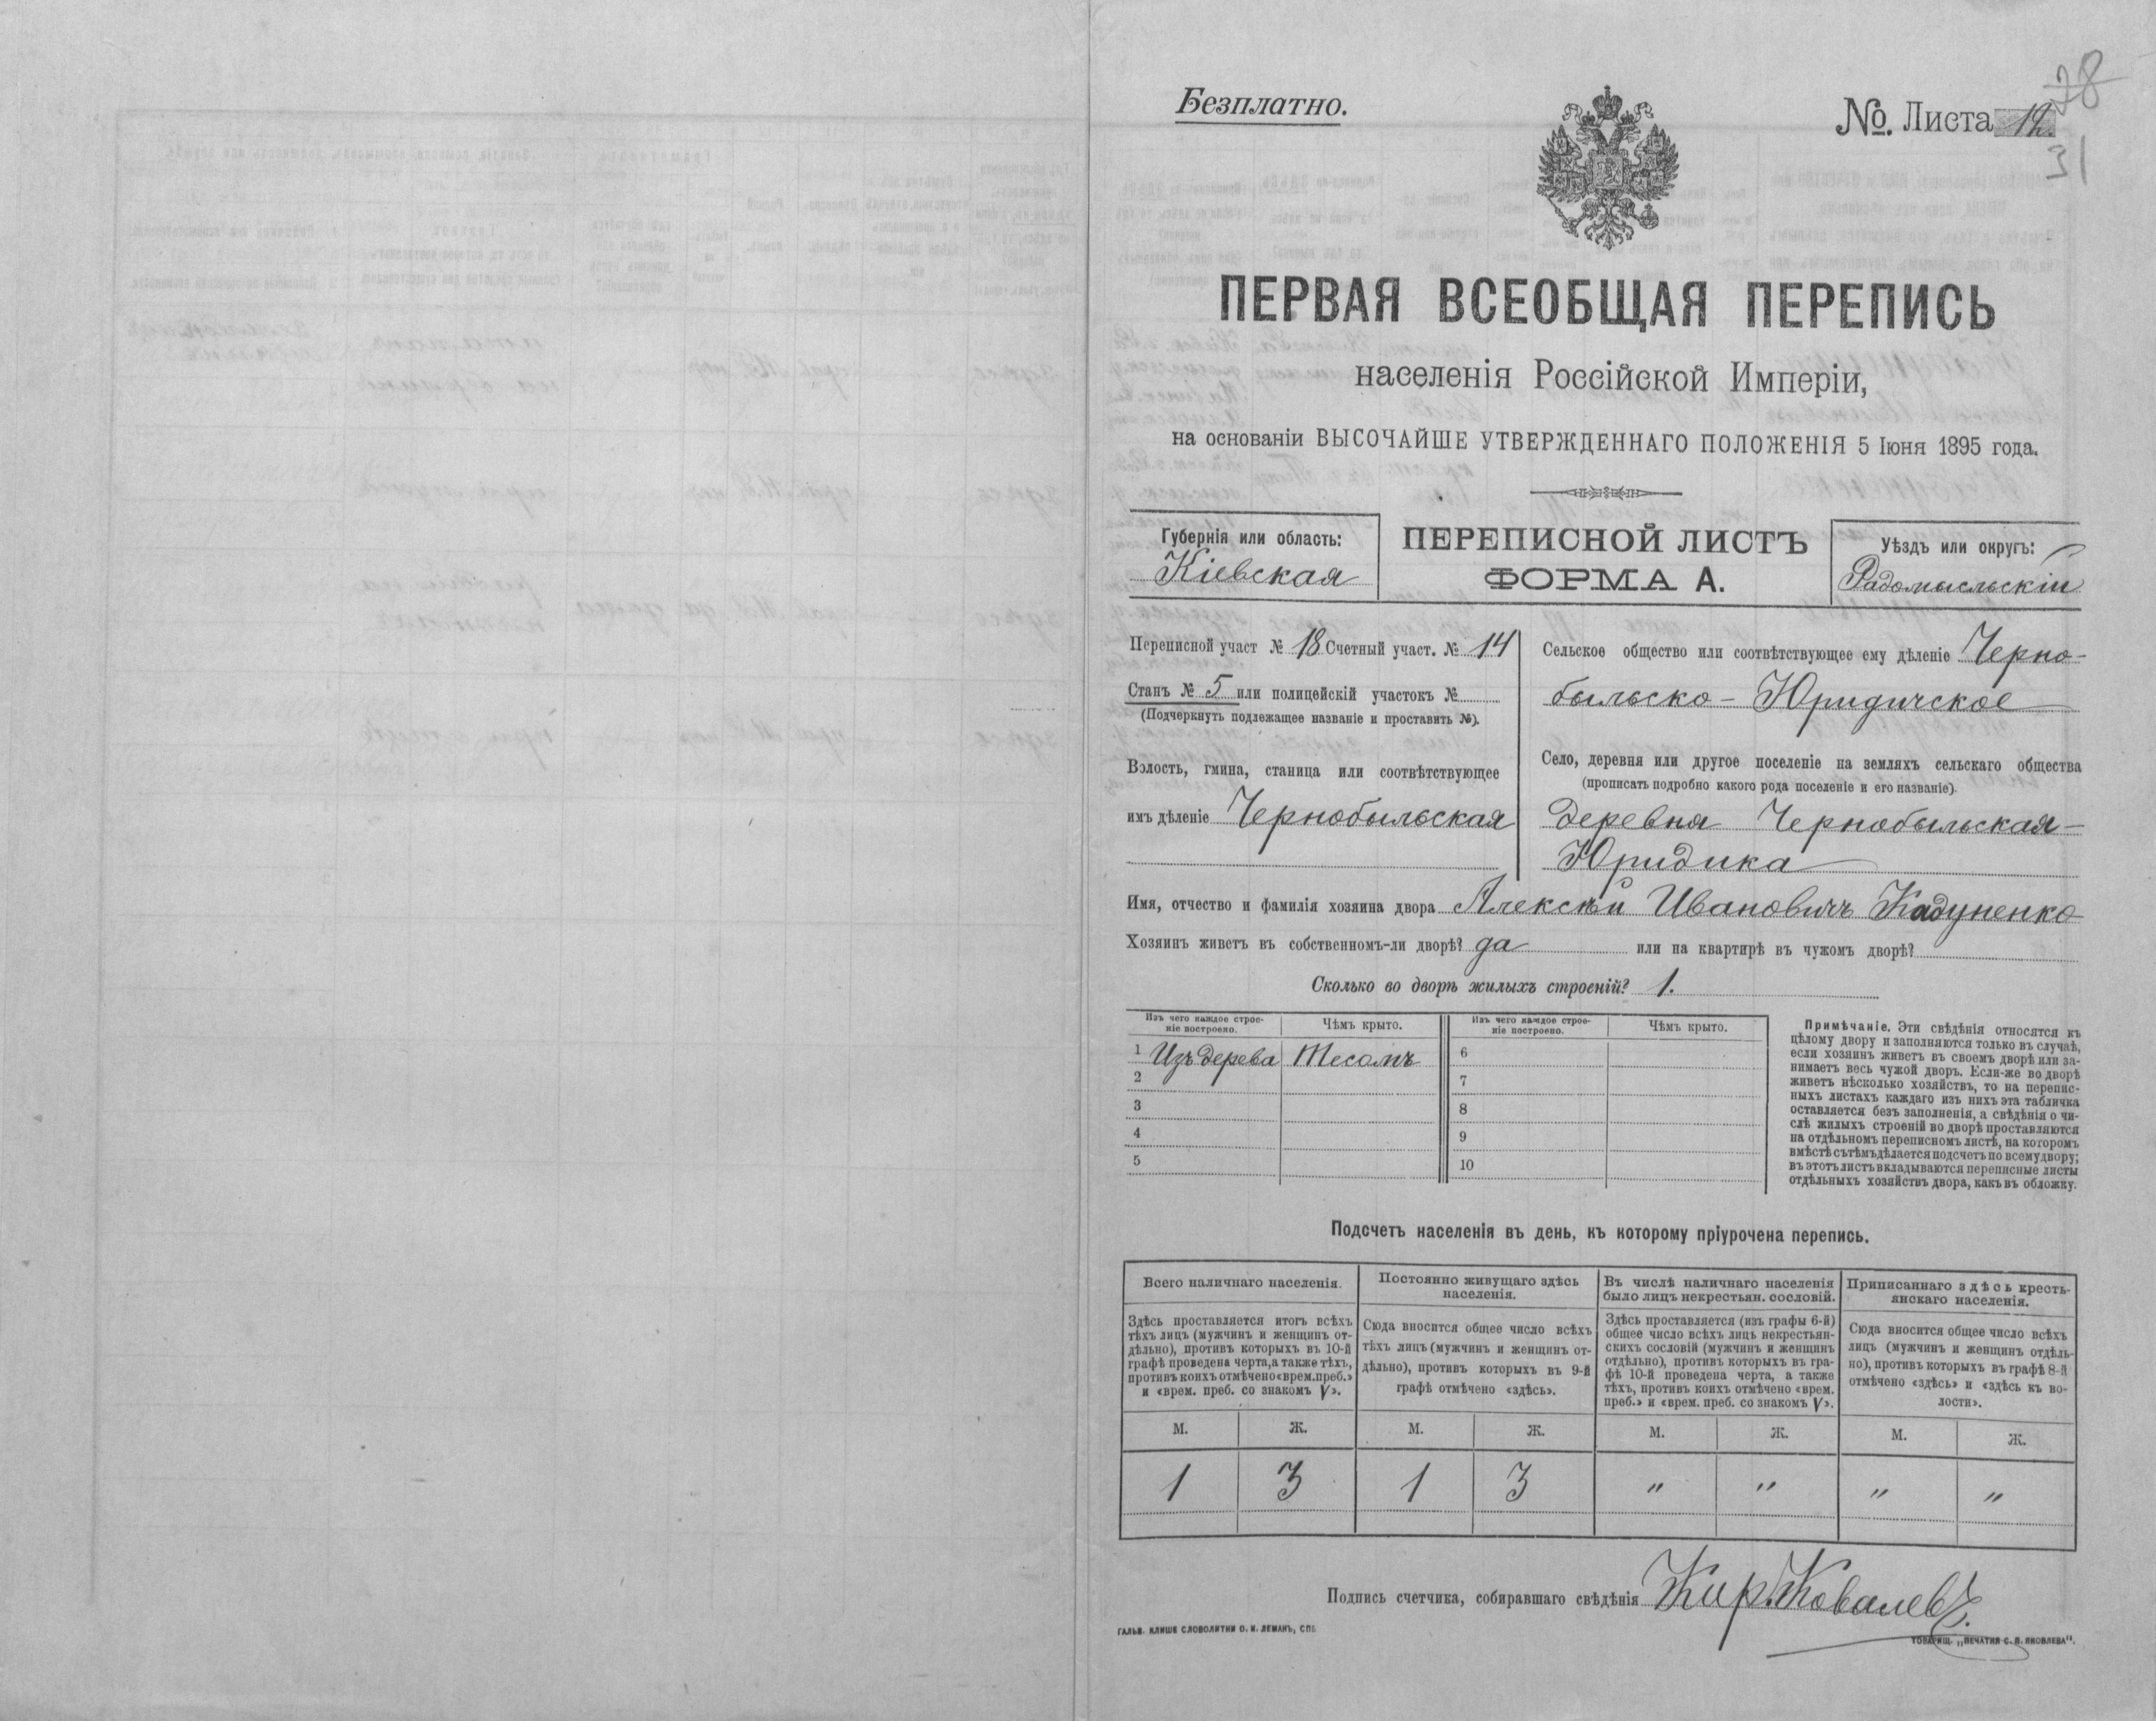 Безплатно.
№. Листа 12.
28
31
ПЕРВАЯ ВСЕОБЩАЯ ПЕРЕПИСЬ
населенія Россійской Имперіи,
на основаніи ВЫСОЧАЙШЕ УТВЕРЖДЕННАГО ПОЛОЖЕНІЯ 5 Іюня 1895 года.
Губернія или область:
Кіевская
ПЕРЕПИСНОЙ ЛИСТЪ
ФОРМА А.
Уѣздъ или округъ:
Радомысльскій
Переписной участ № 18 Счетный участ. № 14
Станъ № 5 или полицейскій участокъ №
(Подчеркнуть подлежащее названіе и проставить №).
Волость, гмина, станица или соотвѣтствующее
имъ дѣленіе Чернобыльская
Сельское общество или соотвѣтствующее ему дѣленіе Черно-
быльско-Юридическое
Село, деревня или другое поселеніе на земляхъ сельскаго общества
(прописать подробно какого рода поселеніе и его названіе).
деревня Чернобыльская-
Юридика
Имя, отчество и фамилія хозяина двора Алексѣй Ивановичъ Кадуненко
Хозяинъ живетъ въ собственномъ-ли дворѣ? да или на квартирѣ въ чужомъ дворѣ?
Сколько во дворѣ жилыхъ строеній? 1.
Изъ чего каждое строе-
ніе построено.
Чѣмъ крыто.
Изъ чего каждое строе-
ніе построено.
Чѣмъ крыто.
1 Изъ дерева Тесомъ
2
3
4
5
6
7
8
9
10
Примѣчаніе. Эти свѣдѣнія относятся къ
цѣлому двору и заполняются только въ случаѣ,
если хозяинъ живетъ въ своемъ дворѣ или за-
нимаетъ весь чужой дворъ. Если-же во дворѣ
живетъ нѣсколько хозяйствъ, то на перепис-
ныхъ листахъ каждаго изъ нихъ эта табличка
оставляется безъ заполненія, а свѣдѣнія о чи-
слѣ жилыхъ строеній во дворѣ проставляются
на отдѣльномъ переписномъ листѣ, на которомъ
вмѣстѣ съ тѣмъ дѣлается подсчетъ по всему двору;
въ этотъ листъ вкладываются переписные листы
отдѣльныхъ хозяйствъ двора, какъ въ обложку.
Подсчетъ населенія въ день, къ которому пріурочена перепись.
Всего наличнаго населенія.
Здѣсь проставляется итогъ всѣхъ
тѣхъ лицъ (мужчинъ и женщинъ от-
дѣльно), противъ которыхъ въ 10-й
графѣ проведена черта, а также тѣхъ,
противъ коихъ отмѣчено «врем. преб.»
и «врем. преб. со знакомъ V».
Постоянно живущаго здѣсь
населенія.
Сюда вносится общее число всѣхъ
тѣхъ лицъ (мужчинъ и женщинъ от-
дѣльно), противъ которыхъ въ 9-й
графѣ отмѣчено «здѣсь».
Въ числѣ наличнаго населенія
было лицъ некрестьян. сословій.
Здѣсь проставляется (изъ графы 6-й)
общее число всѣхъ лицъ некрестьян-
скихъ сословій (мужчинъ и женщинъ
отдѣльно), противъ которыхъ въ гра-
фѣ 10-й проведена черта, а также
тѣхъ, противъ коихъ отмѣчено «врем.
преб.» и «врем. преб. со знакомъ V».
Приписаннаго здѣсь кресть-
янскаго населенія.
Сюда вносится общее число всѣхъ
лицъ (мужчинъ и женщинъ отдѣль-
но), противъ которыхъ въ графѣ 8-й
отмѣчено «здѣсь» и «здѣсь къ во-
лости».
М. Ж. М. Ж. М. Ж. М. Ж.
1 3 1 3 " " " "
Подпись счетчика, собиравшаго свѣдѣнія Кир. Ковалевъ.
ГАЛЬВ. КЛИШЕ СЛОВОЛИТНИ О. И. ЛЕМАНЪ, СПБ.
ТОВАРИЩ. „ПЕЧАТНЯ С. П. ЯКОВЛЕВА".